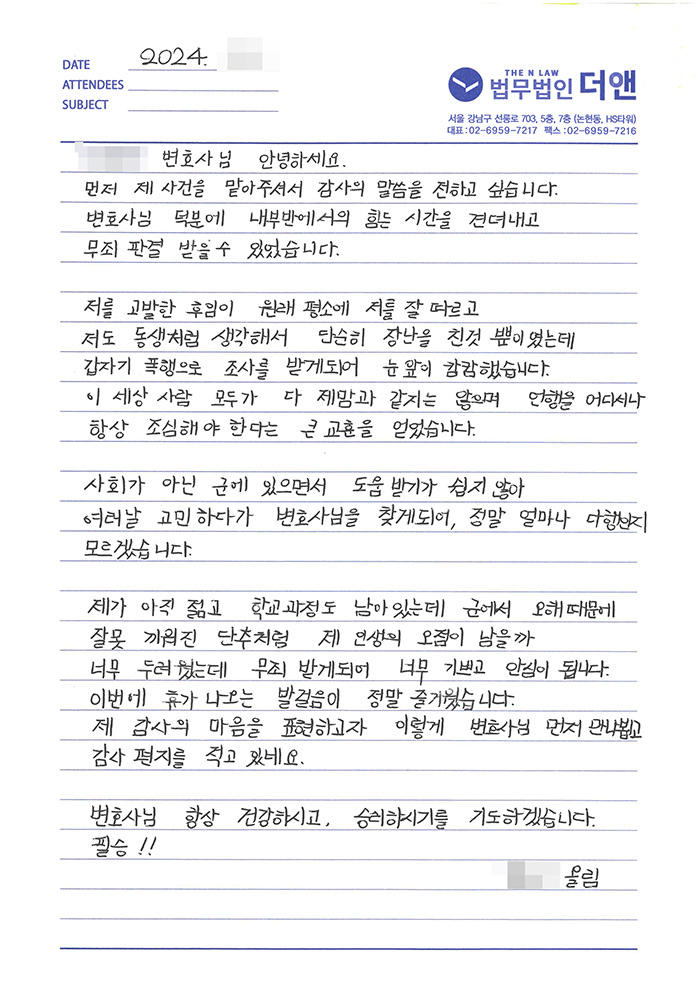 DATE 2024.
ATTENDEES
SUBJECT
THE N LAW
법무법인 더앤
서울 강남구 선릉로 703, 5층, 7층 (논현동, HS타워)
대표 : 02-6959-7217 팩스 : 02-6959-7216
변호사님 안녕하세요.
먼저 제 사건을 맡아주셔서 감사의 말씀을 전하고 싶습니다.
변호사님 덕분에 내부반에서의 힘든 시간을 견뎌내고
무죄 판결 받을 수 있었습니다.
저를 고발한 후임이 원래 평소에 저를 잘 따르고
저도 동생처럼 생각해서 단순히 장난을 친것 뿐이였는데
갑자기 폭행으로 조사를 받게되어 눈앞이 캄캄했습니다.
이 세상 사람 모두가 다 제맘과 같지는 않으며 언행을 어디서나
항상 조심해야 한다는 큰 교훈을 얻었습니다.
사회가 아닌 군에 있으면서 도움 받기가 쉽지 않아
여러날 고민하다가 변호사님을 찾게되어, 정말 얼마나 다행인지
모르겠습니다.
제가 아직 젊고 학교과정도 남아있는데 군에서 오해때문에
잘못 끼워진 단추처럼 제 인생의 오점이 남을까
너무 두려웠는데 무죄 받게되어 너무 기쁘고 안심이 됩니다.
이번에 휴가 나오는 발걸음이 정말 즐거웠습니다.
제 감사의 마음을 표현하고자 이렇게 변호사님 먼저 만나뵙고
감사 편지를 적고 있네요.
변호사님 항상 건강하시고, 승리하시기를 기도하겠습니다.
필승 !!
올림